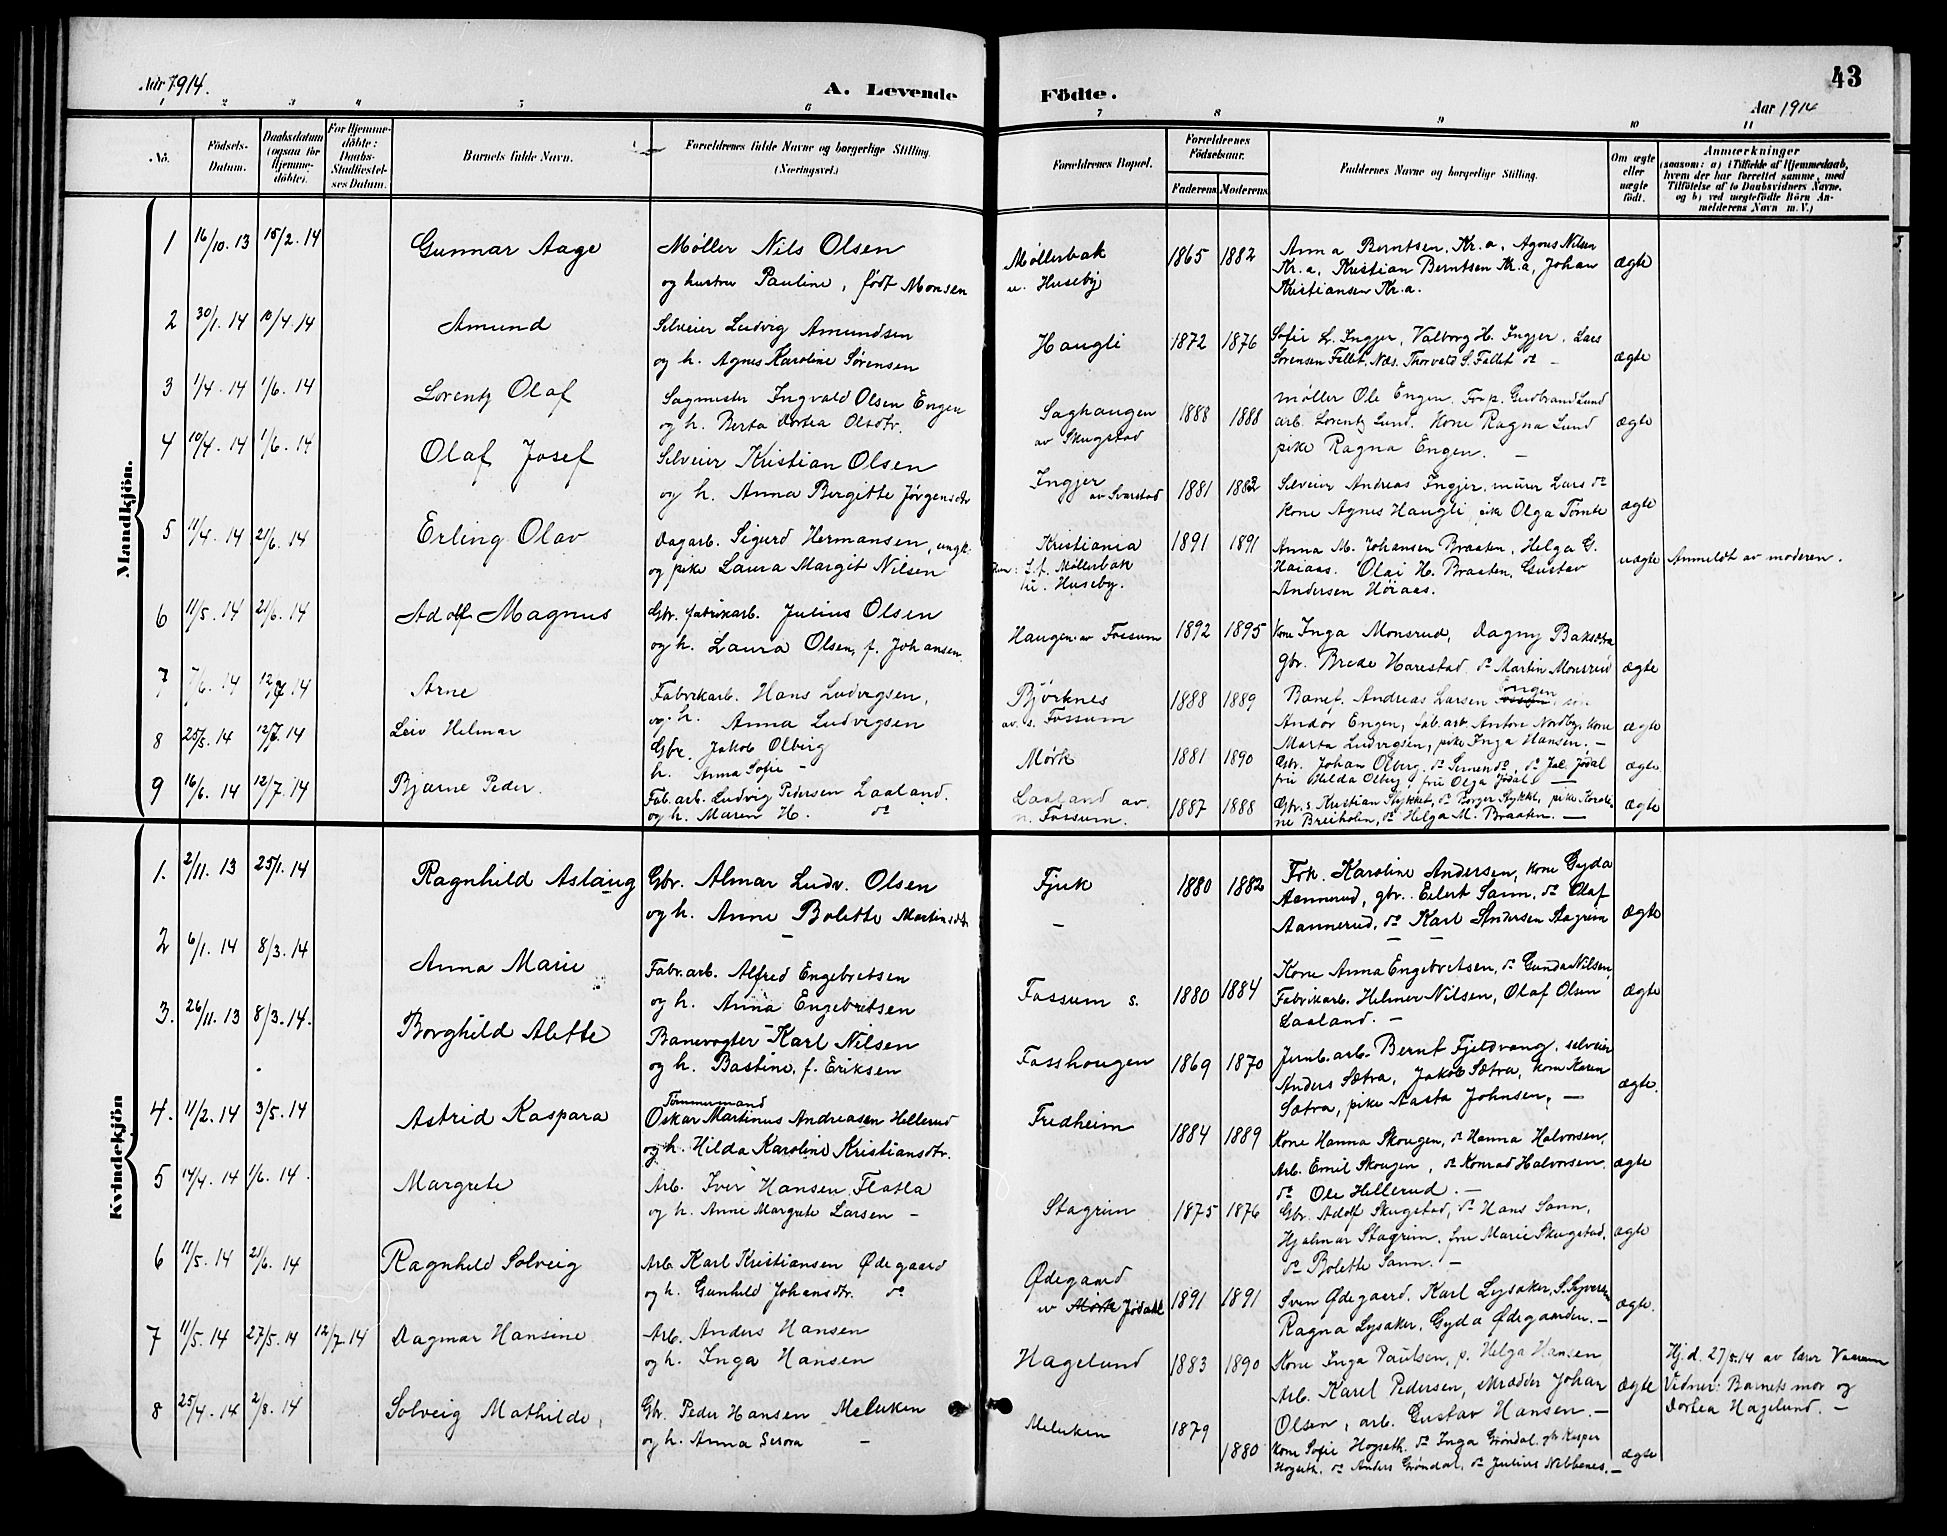 Aar 1914.
A. Levende
Födte.
43
Aar 1914
1 2 3 4 5 6 7 8 9 10 11
No.
Födsels-Datum.
Daabsdatum (ogsaa for Hjemmedöbte).
For Hjemmedöbte: Daabs-Stadfæstelses Datum.
Barnets fulde Navn.
Forældrenes fulde Navne og borgerlige Stilling. (Næringsvei.)
Forældrenes Bopæl.
Forældrenes Födselsaar.
Faderens Moderens
Faddernes Navne og borgerlige Stilling.
Om ægte eller uægte födt.
Anmærkninger
(saasom: a) i Tilfælde af Hjemmedaab, hvem der har forrettet samme, med Tilföielse af to Daabsvidners Navne, og b) ved uægtefödte Börn Anmelderens Navn m. V.)
Mandkjön.
1 16/10. 13 15/2. 14 Gunnar Aage Møller Nils Olsen
og hustru Pauline, født Monsen
Møllerbak
u. Huseby
1865 1882 Anna Berntsen, Kr.a, Agnes Nilsen
Kr.a, Kristian Berntsen Kr.a, Johan
Kristiansen Kr.a.
ægte
2 30/1. 14 10/4. 14 Amund Selveier Ludvig Amundsen
og h. Agnes Karoline Sørensen
Haugli 1872 1876 Sofie L. Ingjer, Valborg H. Ingjer, Lars
Sørensen Fallet, Næs. Thorvald S. Fallet do –
ægte
3 1/4. 14 1/6. 14 Lorentz Olaf Sagmester Ingvald Olsen Engen
og h. Berta Dortea Olsdtr.
Saghaugen
av Skugstad
1888 1888 møller Ole Engen. Forp. Gudbrand Lund
arb. Lorentz Lund. Kone Ragna Lund
pike Ragna Engen. –
ægte
4 10/4. 14 1/6. 14 Olaf Josef Selveier Kristian Olsen
og h. Anna Birgitte Jørgensdtr
Ingjer
av Svarstad
1881 1882 Selveier Andreas Ingjer, murer Lars do
Kone Agnes Haugli, pike Olga Tømte
ægte
5 11/4. 14 21/6. 14 Erling Olav Dagarb. Sigurd Hermansen, ungk.
og pike Laura Margit Nilsen
Kristiania
Møllerbak
u. Huseby.
1891 1891 Anna M. Johansen Braaten, Helga G.
Haiaas. Olai H. Braaten, Gustav
Andersen Høiaas.
uægte Anmeldt av moderen.
6 11/5. 14 21/6. 14 Adolf Magnus Gbr. fabrikarb. Julius Olsen
og h. Laura Olsen, f. Johansen.
Haugen av Fossum 1892 1895 Kone Inga Monsrud, Dagny
gbr. Brede Harestad do Martin Monsrud
ægte
7 7/6. 14 12/7 14 Arne Fabrikarb. Hans Ludvigsen,
og h. Anna Ludvigsen
Bjørknes
av s. Fossum
1888 1889 Banef. Andreas Larsen Engen,
Andor Engen, fab. arb. Anton Nordby, kone
Marta Ludvigsen, pike Inga Hansen. –
ægte
8 25/5. 14 12/7. 14 Leiv Helmar Gbr. Jakob Olberg
h. Anna Sofie –
Mørk 1881 1890 Gbr. Johan Olberg, do, do Jac. Jødal
fru Hilda Olberg, fru Olga Jødal –
ægte
9 16/6. 14 12/7. 14 Bjarne Peder. Fab. arb. Ludvig Pedersen Laaland.
og h. Maren H. do
Laaland av
n. Fossum.
1887 1888 Gbr. s. Kristian Stykket, do Borger Stykket, pike Karoli
ne Breiholen, do Helga M. Braaten. –
ægte
Kvindekjön
1. 2/11. 13 25/1. 14 Ragnhild Aslaug Gbr. Almar Ludv. Olsen
og h. Anne Bolette Martinsdtr
Fjuk
–
1880 1882 Frk. Karoline Andersen, kone Gyda
Aannerud, gbr. Eilert Sann, do Olaf
Aannerud, do Karl Andersen Stagrim
ægte
2 6/1. 14 8/3. 14 Anna Marie Fabr. arb. Alfred Engebretsen
og h. Anna Engebretsen
Fossum s. 1880 1884 Kone Anna Engebretsen, do Gunda Nilsen,
Fabrikarb. Helmer Nilsen, Olaf Olsen
Laaland. –
ægte
3. 26/11. 13 8/3. 14. Borghild Alette Banevogter Karl Nilsen
og h. Bastine, f. Eriksen
Fosshaugen 1869 1870 Jernb. arb. Bernt Fjeldvang, selveier
Anders Sætra, Jakob Sætra, kone Karen
Sætra, pike Aasta Johnsen, –
ægte.
4. 11/2. 14 3/5. 14 Astrid Kaspara Tømmermand
Oskar Martinus Andreasen Hellerud
og h. Hilda Karoline Kristiansdtr.
Fredheim 1884 1889 Kone Hanna Skougen, do Hanna Halvorsen,
Arb. Emil Skougen, do Konrad Halvorsen
do Ole Hellerud. –
ægte
5 14/4. 14 1/6. 14. Margrete Arb. Iver Hansen Flatla
og h. Anne Margrete Larsen –
Stagrim 1875 1876 Gbr. Adolf Skugstad, do Hans Sann,
Hjalmar Stagrim, fru Marie Skugstad,
do Bolette Sann. –
ægte
6 11/5. 14 21/6. 14 Ragnhild Solveig Arb. Karl Kristiansen Ødegaard
og h. Gunhild Johansdtr. do
Ødegaard
av Mørk Jødahl
1891 1891 Sven Ødegaard. Karl Lysaker, S. Syversen
Ragna Lysaker, Gyda Ødegaarden. –
ægte.
7 11/5. 14 27/5. 14 12/7. 14 Dagmar Hansine Arb. Anders Hansen
og h. Inga Hansen
Hagelund 1883 1890 Kone Inga Paulsen, p. Helga Hansen
Arb. Karel Pedersen, skrædder Johan
Olsen, arb. Gustav Hansen. –
ægte Hj. d. 27/5. 14 av lærer Vaarum
Vidner: Barnets mor og
Dortea Hagelund. –
8 25/4. 14 2/8. 14 Solveig Mathilde, Gbr. Peder Hansen Meluken
og h. Anna Serora –
Meluken 1879 1880 Kone Sofie Hogseth. do Inga Grøndal, gbr Kasper
Hogseth. do Anders Grøndal, do Julius Nebbenes. –
ægte